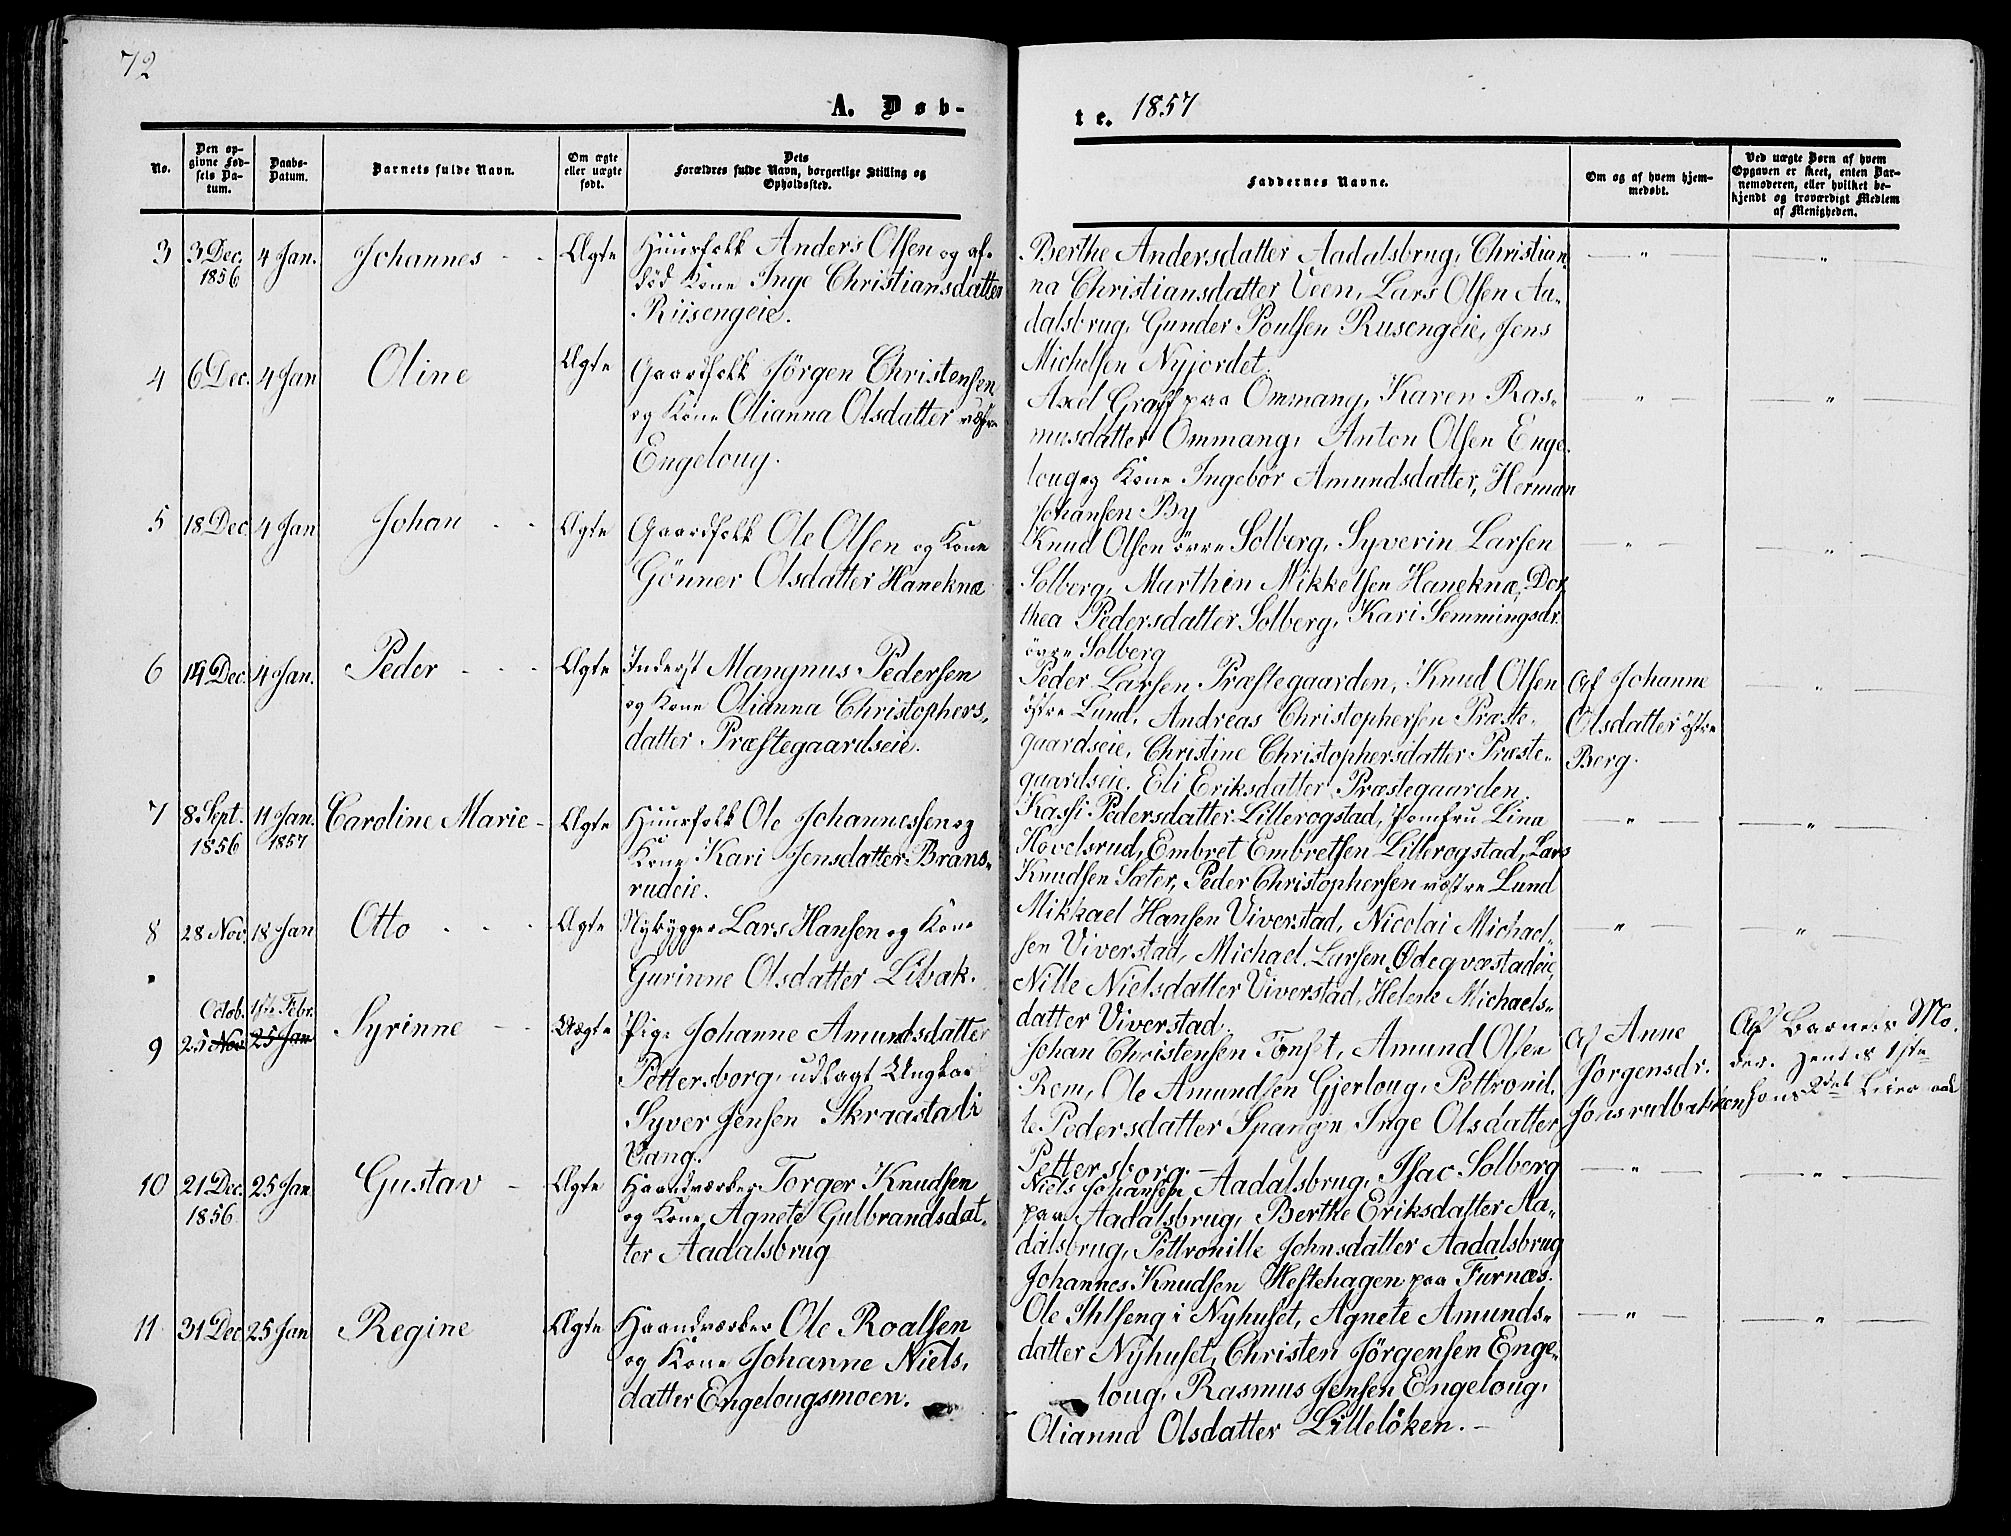 72
A. Døb-
te. 1857
No.
Den op-
givne Fød-
sels Da-
tum.
Daabs-
Datum.
Barnets fulde Navn.
Om ægte
eller uægte
født.
Dets
Forældres fulde Navn, borgerlige Stilling og
Opholdssted.
Faddernes Navne.
Om og af hvem hjem-
medøbt.
Ved uægte Børn af hvem
Opgaven er skeet, enten Bar-
nemoderen, eller hvilket be-
kjendt og troværdigt Medlem
af Menigheden.
3 3 Dec. 1856 4 Jan. Johannes - - Ægte
Huusfolk Anders Olsen og af-
død Kone Inge Christiansdatter
Riisengeie.
Berthe Andersdatter Aadalsbrug, Christian-
na Christiansdatter Veen, Lars Olsen Aa-
dalsbrug, Gunder Poulsen Rusengeie, Jens
Michelsen Nyjordet.
4 6 Dec. 4 Jan Oline Ægte
Gaardfolk Jörgen Christensen
og Kone Olianna Olsdatter vestre
Engeloug.
Axel Graff paa Ommang, Karen Ras-
musdatter Ommang, Anton Olsen Enge-
loug og Kone Ingebor Amundsdatter, Herman
Johansen By
5 18 Dec 4 Jan Johan - - Ægte
Gaardfolk Ole Olsen og Kone
Gönner Olsdatter Haneknæ
Knud Olsen övre Solberg, Syverin Larsen
Solberg, Marthin Mikkelsen Haneknæ, Dor-
thea Pedersdatter Solberg, Kari Semmingsdr.
övre Solberg
6 14 Dec. 4 Jan. Peder - - - Ægte
Inderst Mangnus Pedersen
og Kone Olianna Christophers-
datter Præstegaardseie.
Peder Larsen Præstegaarden, Knud Olsen
östre Lund, Andreas Christophersen Præste-
gaardseie, Christine Christophersdatter Præste-
gaardseie. Eli Eriksdatter Præstegaarden.
Af Johanne
Olsdatter östre
Berg.
7 8 Sept. 1856 11 Jan. 1857 Caroline Marie - Ægte
Huusfolk Ole Johannessen og
Kone Kari Jensdatter Brans-
rudeie.
Kassi Pedersdatter Lillerogstad, Jomfru Lina
Hovelsrud, Embret Embretsen Lillerogstad, Lars
Knudsen Sæter, Peder Christophersen væstre Lund
8 28 Nov. 18 Jan Otto - - - Ægte
Nybygger Lars Hansen og Kone
Gurinne Olsdatter Libak.
Mikkael Hansen Viverstad, Nicolai Michael-
sen Viverstad, Michael Larsen Ødeqvæstadeie,
Nille Nielsdatter Viverstad, Helene Michaels-
datter Viverstad.
Octob. 1ste Febr.
9 25 Nov 25 Jan Syrinne - - Uægte
Pige Johanne Amundsdatter
Pettersborg, udlagt Ungkar
Syver Jensen Skraastad i
Vang.
Johan Christensen Tönset, Amund Olsen
Rem, Ole Amundsen Gjerloug, Pettronil-
le Pedersdatter Spangen Inge Olsdatter
Pettersborg. -
Af Anne
Jörgensdr.
Jonsrudbakken
Af Barnets Mo-
der. 1ste
2det
10 21 Dec. 1856 25 Jan Gustav - Ægte
Haandværker Torger Knudsen
og Kone Agnete Gulbrandsdat-
ter Aadalsbrug
Niels Johansen Aadalsbrug, Isac Solberg
paa Aadalsbrug, Berthe Eriksdatter Aa-
dalsbrug, Pettronille Johnsdatter Aadalsbrug
Johannes Knudsen Hestehagen paa Furnæs.
11 31 Dec 25 Jan Regine Ægte
Haandværker Ole Roalsen
og Kone Johanne Niels-
datter Engelougsmoen.
Ole Ihlseng i Nyhuset, Agnete Amunds-
datter Nyhuset, Christen Jörgensen Enge-
loug, Rasmus Jensen Engeloug,
Olianna Olsdatter Lilleløken. -